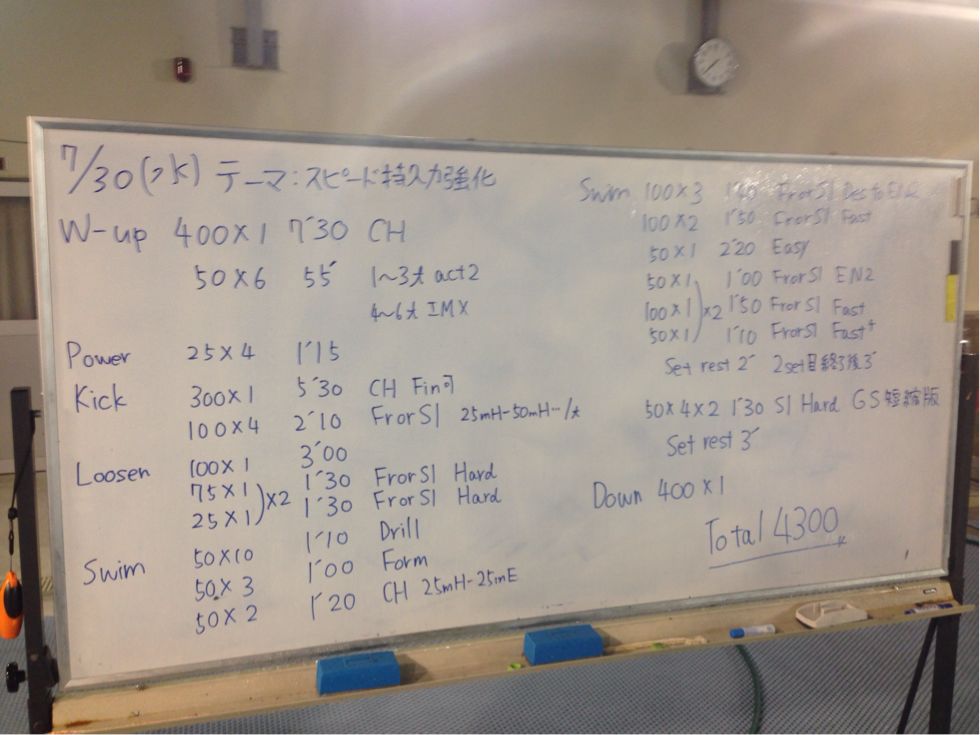 7/30(水) テーマ:スピード持久力強化
W-up 400×1 7'30 CH
50×6 55" 1〜3t act2
4〜6t IMX
Power 25×4 1'15
Kick 300×1 5'30 CH Fin可
100×4 2'10 FrorS1 25mH-50mH…/t
Loosen 100×1 3'00
75×1 1'30 FrorS1 Hard
25×1)×2 1'30 FrorS1 Hard
Swim 50×10 1'10 Drill
50×3 1'00 Form
50×2 1'20 CH 25mH-25mE
Swim 100×3 1'40 FrorS1 Des to EN2
100×2 1'50 FrorS1 Fast
50×1 2'20 Easy
50×1 1'00 FrorS1 EN2
100×1)×2 1'50 FrorS1 Fast
50×1 1'10 FrorS1 Fast+
Set rest 2' 2set目終了後3'
50×4×2 1'30 S1 Hard GS短縮版
Set rest 3'
Down 400×1
Total 4300